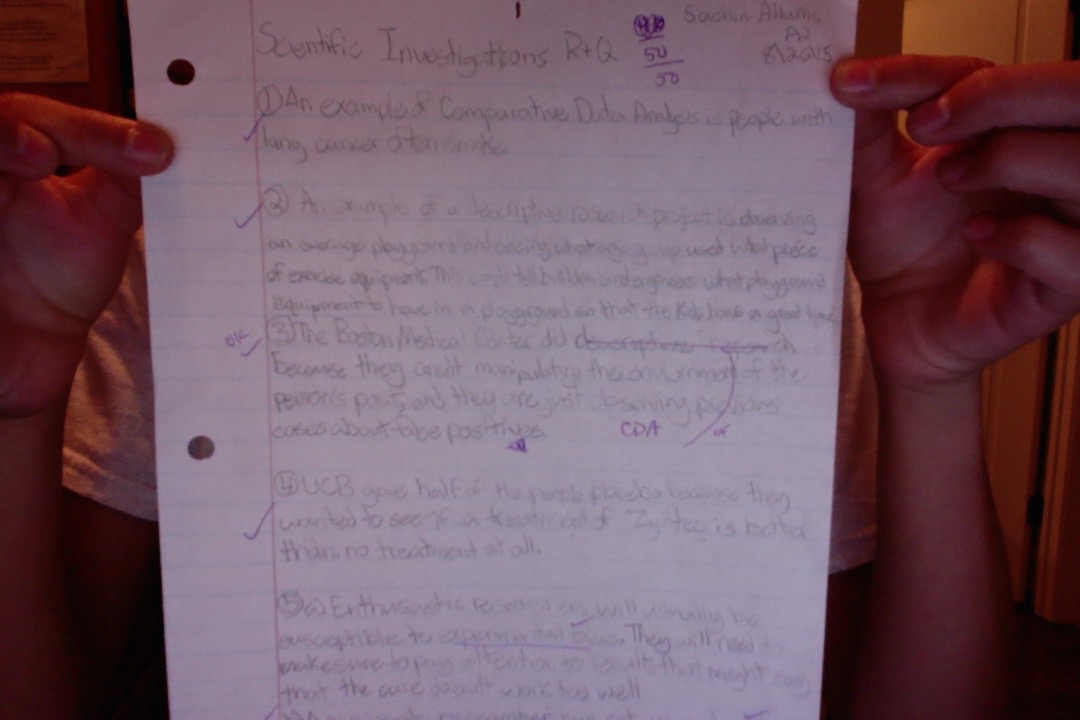 Scientific Investigations R+Q 50/50 Sachin Allums
A2
① An example of Comparative Data Analysis is people with
lung cancer often smoke.
② An example of a descriptive research project is observing
an average playground and used what piece
of exercise equipment. This could tell builders and engineers what playground
equipment to have in a playground so that the kids have a great time
OK ③ The Boston Medical Center did descriptive research
because they aren't manipulating the environment of the
person's past, and they are just observing previous
cases about false positives. CDA or
④ UCB gave half of the people placebo because they
wanted to see if a treatment of Zyrtec is better
than no treatment at all.
⑤ a) Enthusiastic researchers will usually be
susceptible to experimental bias. They will need to
make sure to pay attention to results that might
that the cure doesn't work too well